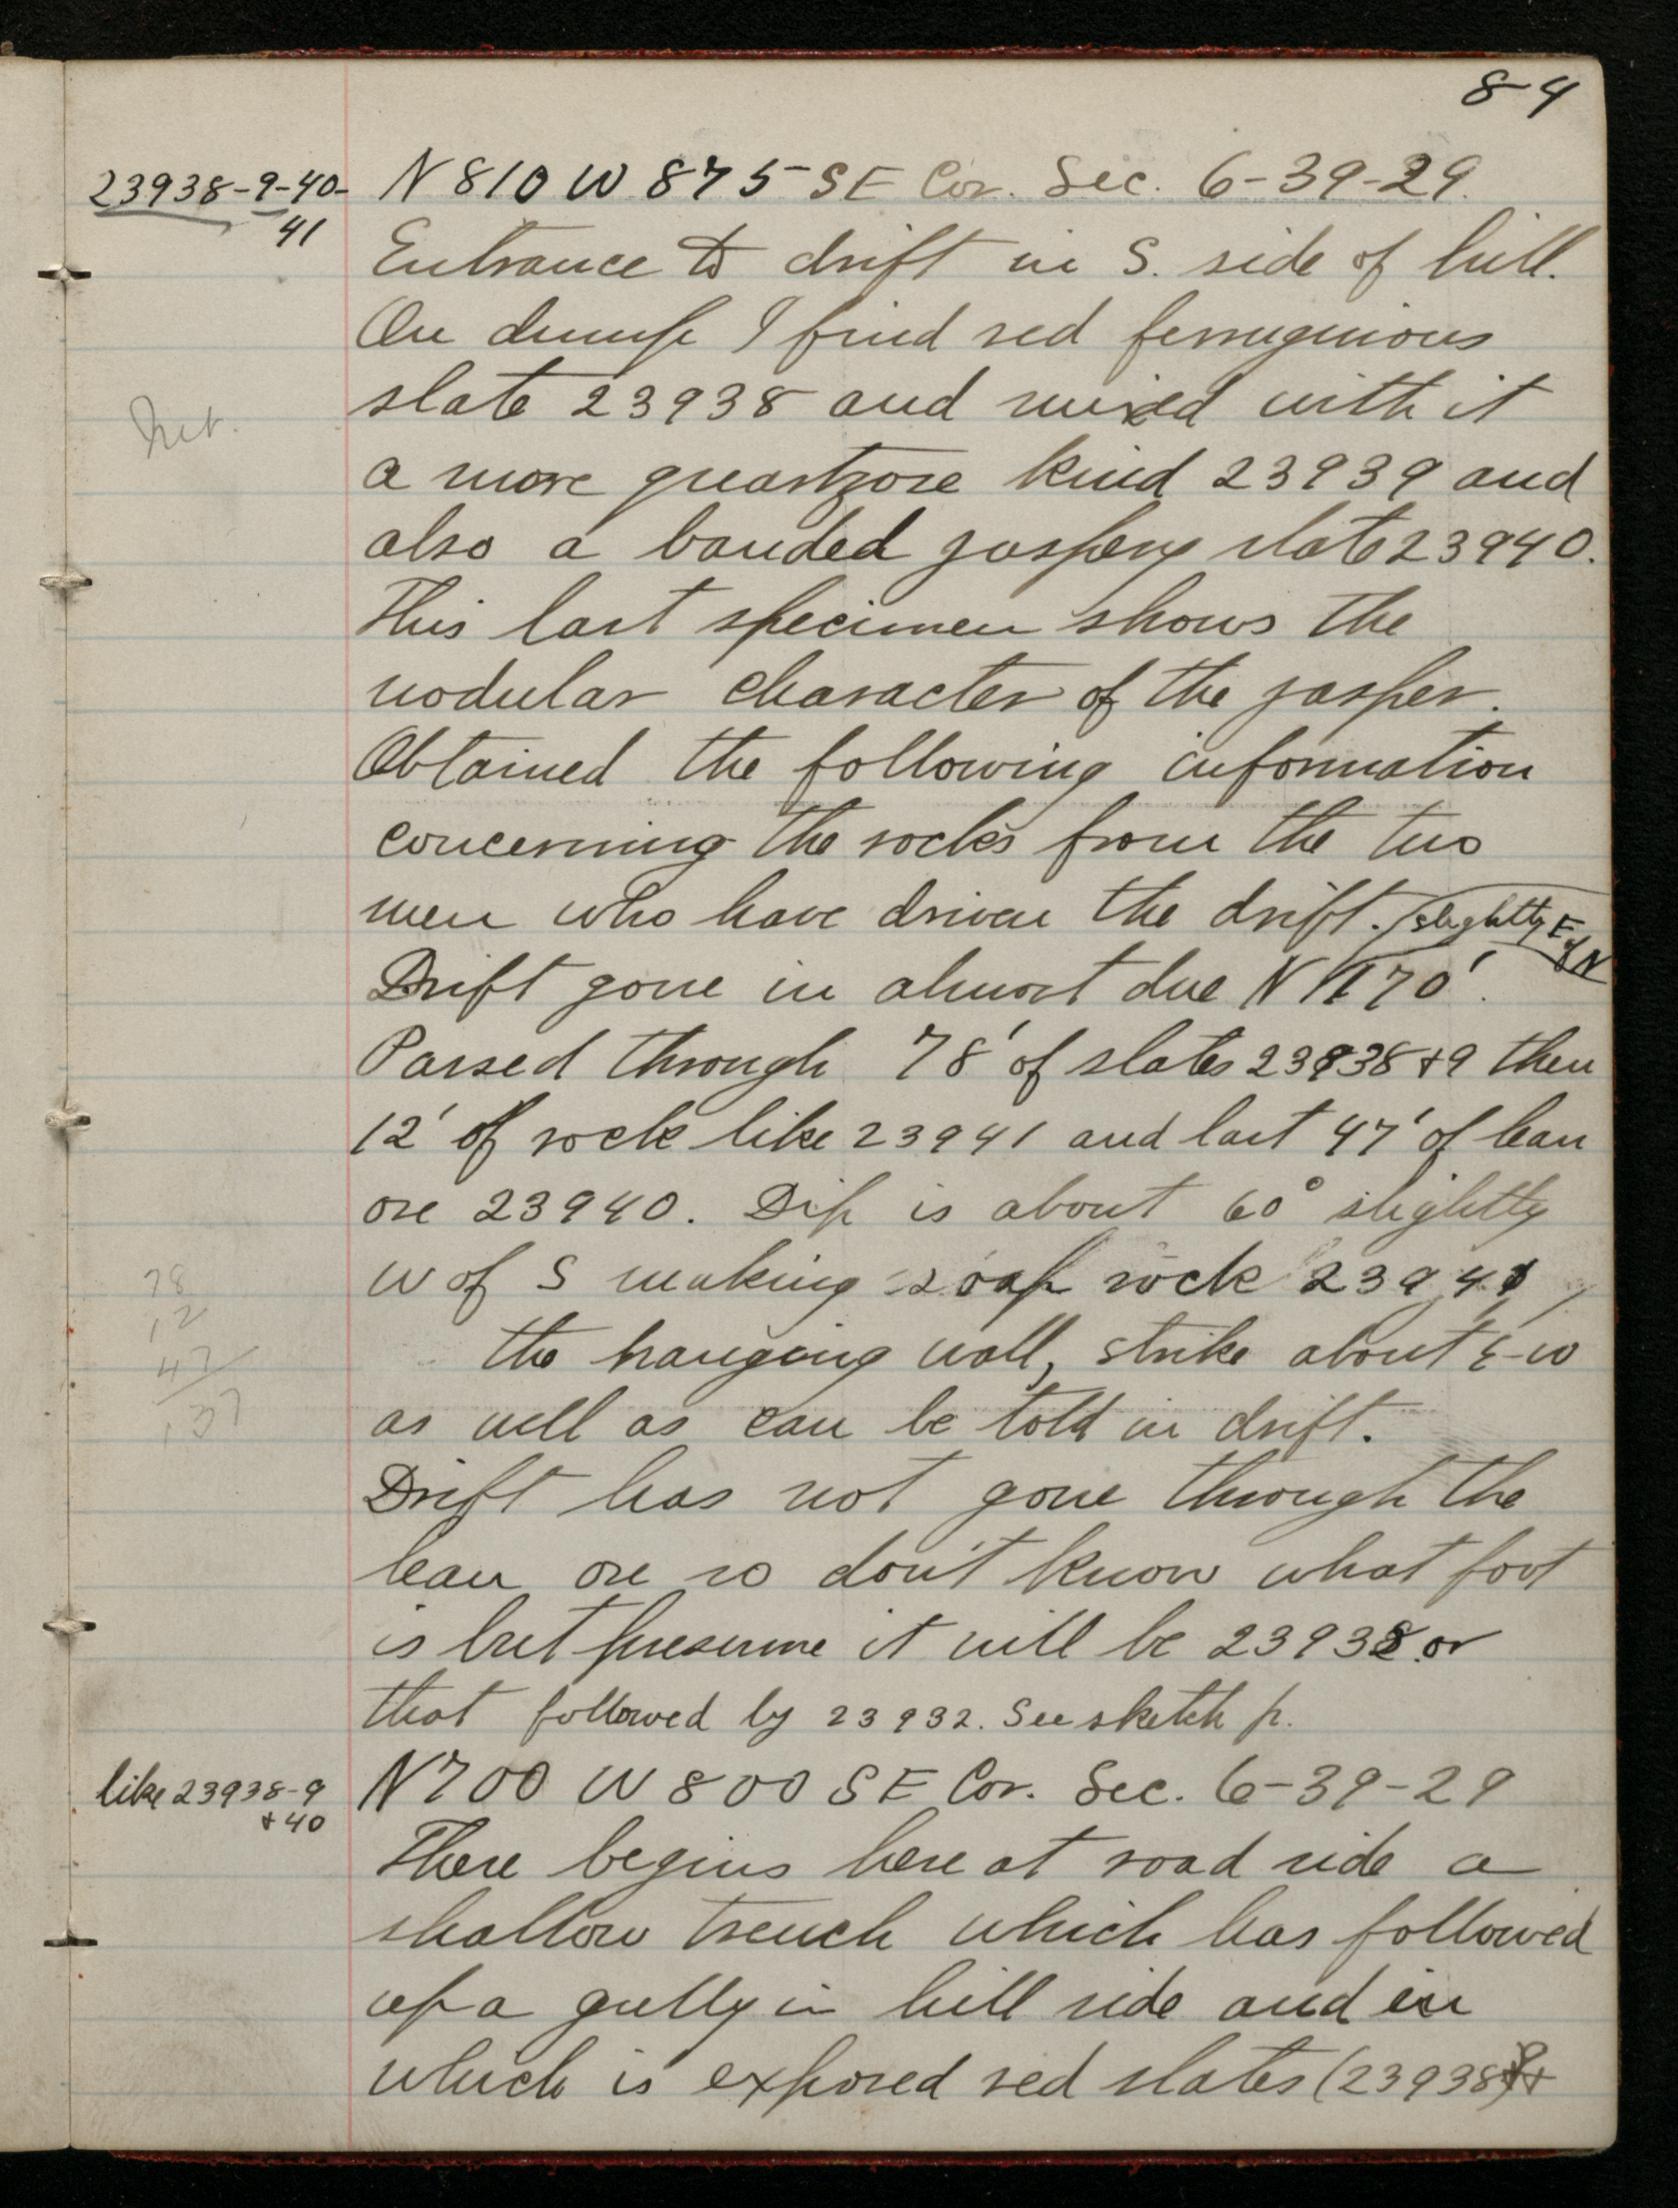 84
23938-9-40-
41
N 810 W 875 SE Cor. Sec. 6-39-29.
Entrance to drift in S. side of hill.
On dump I find red ferruginious
slate 23938 and mixed with it
a more quartzose kind 23939 and
also a banded jaspery slate 23940.
This last specimen shows the
nodular character of the jasper.
Obtained the following information
concerning the rocks from the two
men who have driven the drift.
(slightly E of N
Drift gone in almost due N 170'.
Passed through 78' of slates 23938 + 9 then
12' of rock like 23941 and last 47' of lean
ore 23940. Dip is about 60° slightly
W of S making soap rock 23941
the hanging wall, strike about E-W
as well as can be told in drift.
Drift has not gone through the
lean ore so don't know what foot
is but presume it will be 23938 or
that followed by 23932. See sketch p.
78
12
47
137
like 23938-9
+ 40
N 700 W 800 SE Cor. Sec. 6-39-29
There begins here at road side a
shallow trench which has followed
up a gully in hill side and in
which is exposed red slates (23938